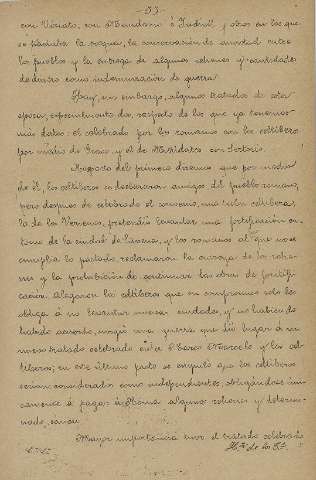 - 53 -
con Viriato, con Mandonio é Indivil y otros en los que
se pactaba la tregua, la conservación de amistad entre
los pueblos y la entrega de algunos rehenes y cantidades
de dinero como indemnización de guerra.
Hay, sin embargo, algunos tratados de esta
época, especialmente dos, respecto de los que ya tenemos
más datos: el celebrado por los romanos con los celtíberos
por medio de Graco, y el de Mitridates con Sertorio.
Respecto del primero diremos que por medio
de él, los celtíberos se declararon amigos del pueblo romano,
pero después de celebrado el convenio, una tribu celtíbera,
la de los
pretendió levantar una fortificación en
torno de la ciudad de
y los romanos al
que no se
cumplía lo pactado, reclamaron la entrega de los rehe-
nes y la prohibición de continuar las obras de fortifi-
cación. Alegaron los celtíberos que su compromiso solo les
obliga á no levantar nuevas ciudades, y no habiendo
habido acuerdo, surgió una guerra que dió lugar á un
nuevo tratado celebrado entre Marco Marcelo y los cel-
tíberos; en este último pacto se estipuló que los celtíberos
serían considerados como independientes, obligándose úni-
camente á pagar á Roma algunos rehenes y determi-
nado canon.
Mayor importancia tuvo el tratado celebrado